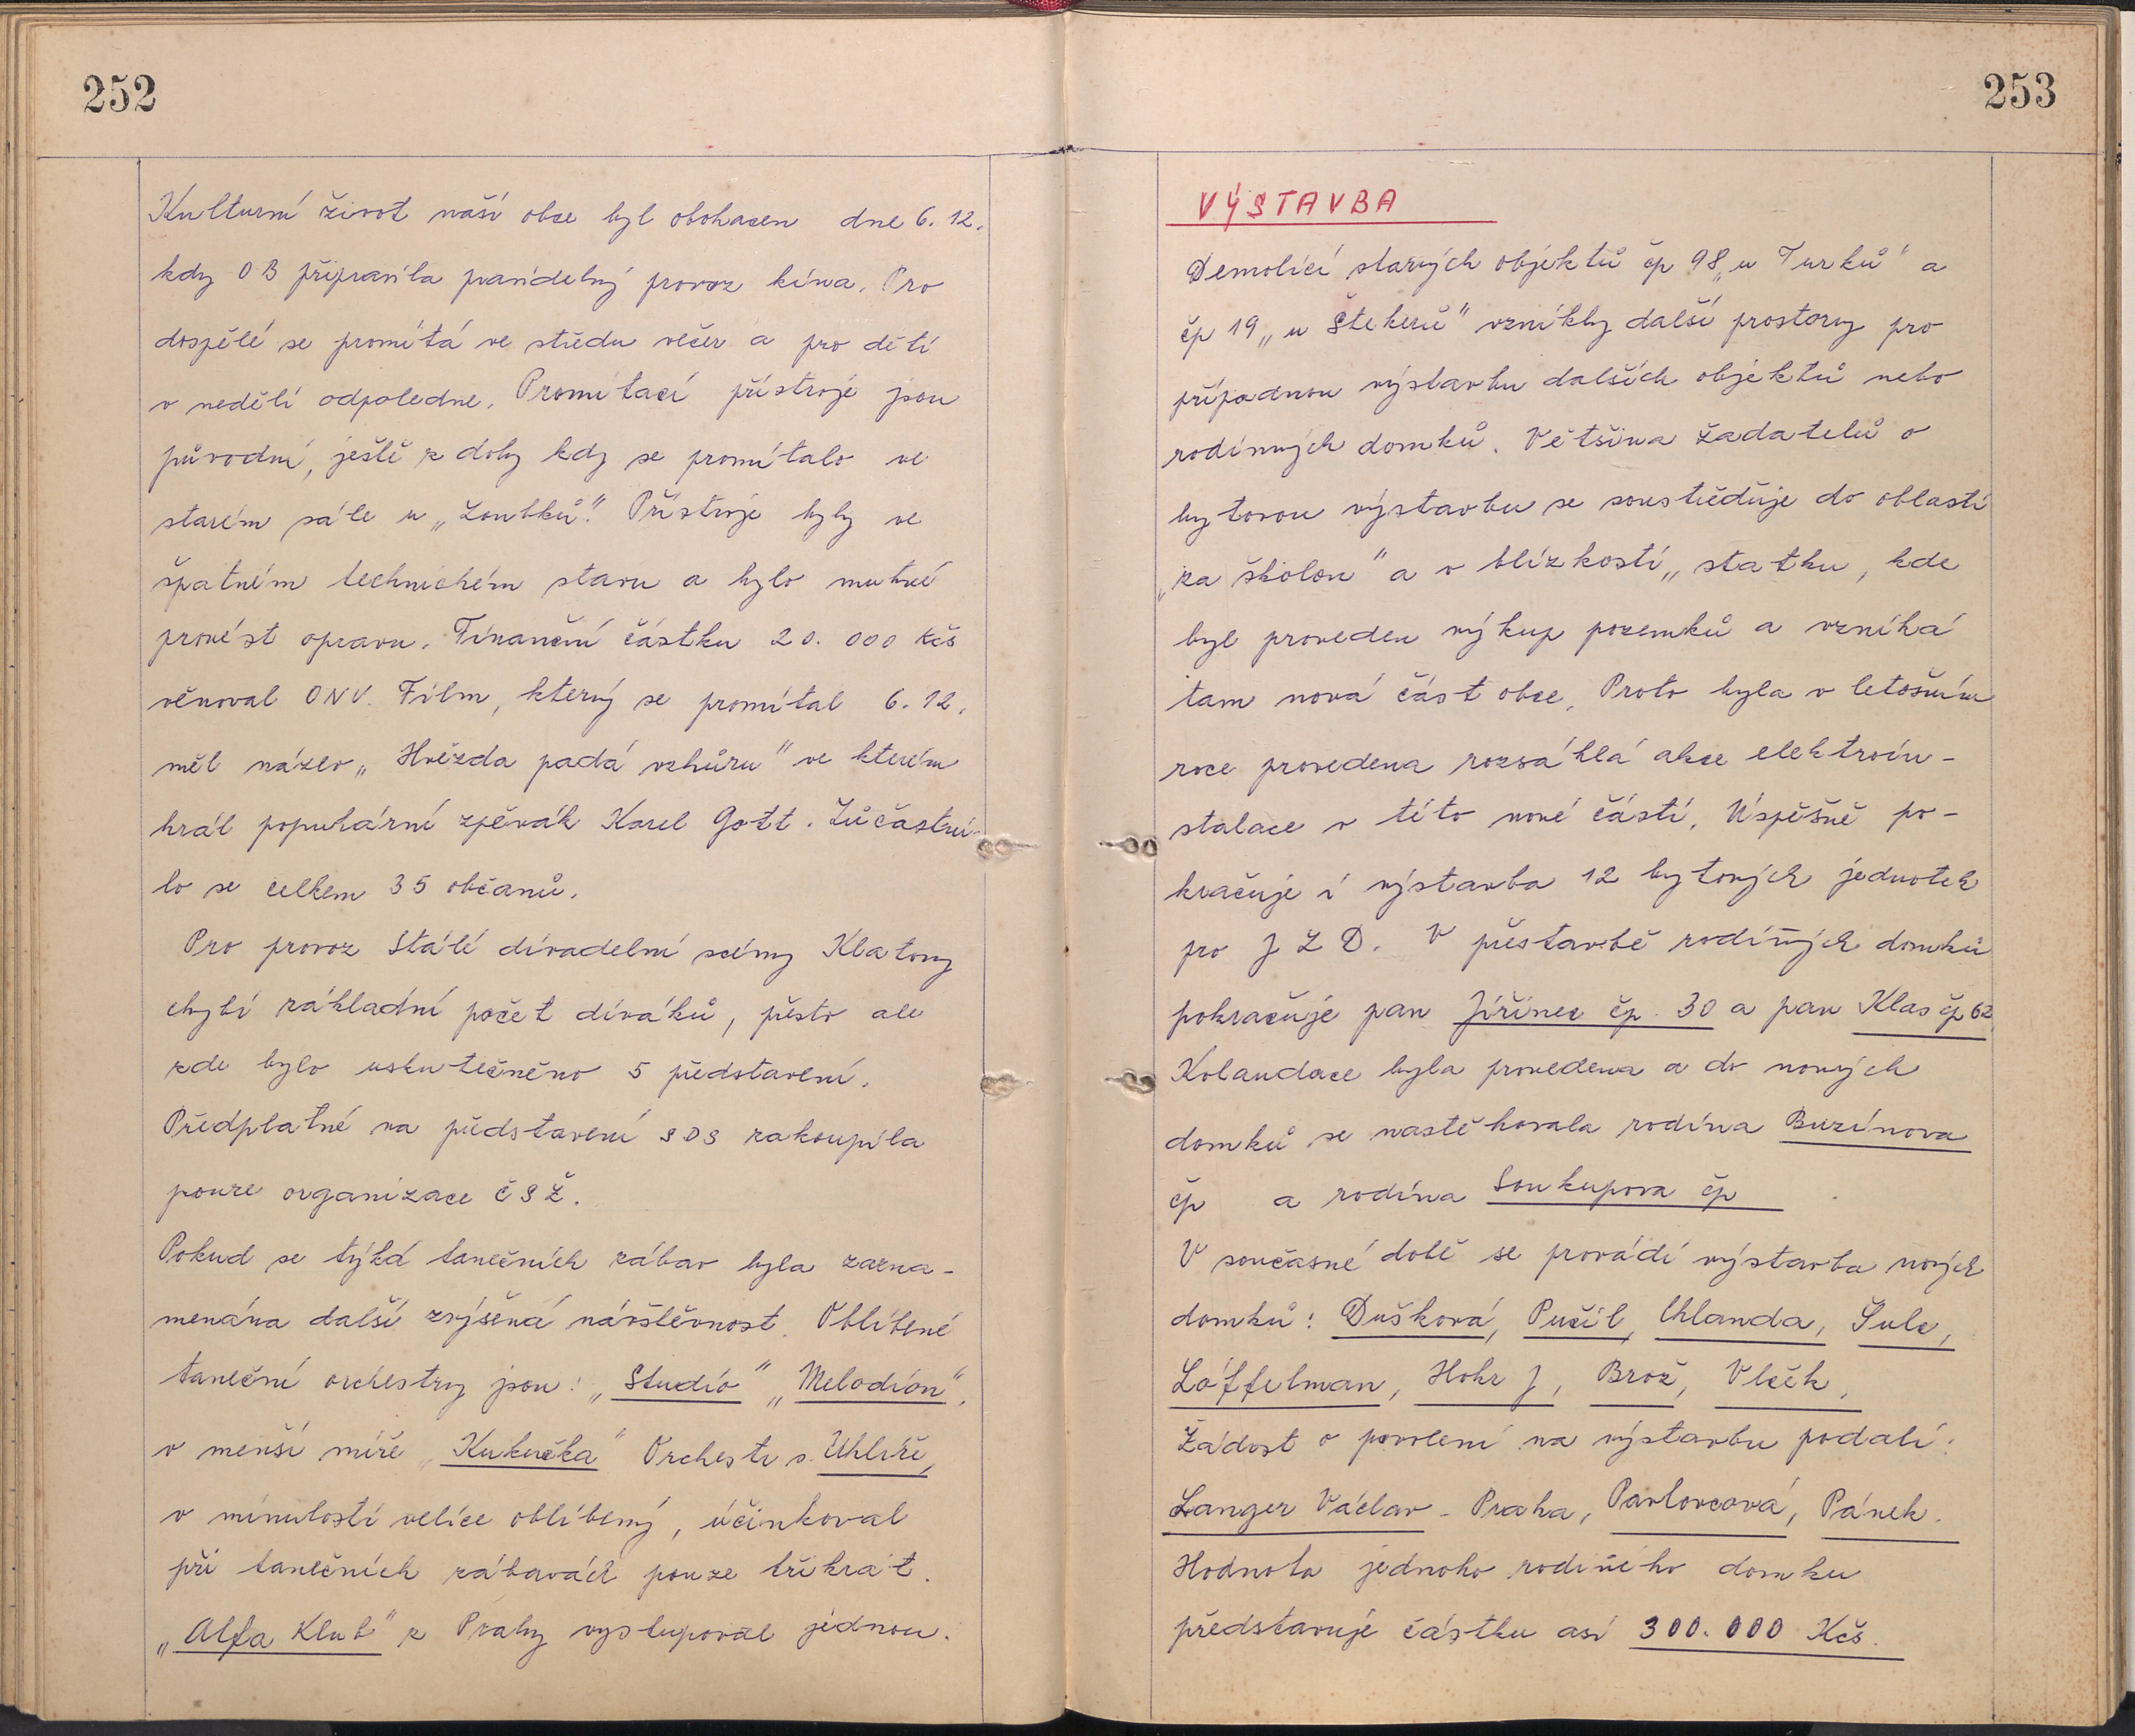 252
Kulturní život naší obce byl obohacen dne 6. 12.
kdy OB připravila pravidelný provoz kina. Pro
dospělé se promítá ve středu večer a pro děti
v neděli odpoledne. Promítací přístroje jsou
původní, ještě z doby kdy se promítalo ve
starém sále u „Žoubků". Přístroje byly ve
špatném technickém stavu a bylo nutné
provést opravu. Finanční částku 20. 000 Kčs
věnoval ONV. Film, který se promítal 6. 12.
měl název „Hvězda padá vzhůru" ve kterém
hrál populární zpěvák Karel Gott. Zůčastni-
lo se celkem 35 občanů.
Pro provoz Stálé divadelní scény Klatovy
chybí základní počet diváků, přesto ale
zde bylo uskutečněno 5 představení.
Předplatné na představení SDS zakoupila
pouze organizace ČSŽ.
Pokud se týká tanečních zábav byla zazna-
menána další zvýšená návštěvnost. Oblíbené
taneční orchestry jsou: „Studio" „Melodion",
v menší míře „Kukučka" Orchestr s. Uhlíře,
v minulosti velice oblíbený, účinkoval
při tanečních zábavách pouze třikrát.
„Alfa Klub" z Prahy vystupoval jednou.
253
VÝSTAVBA
Demolicí starých objektů čp 98 „u Turků" a
čp 19 „u Štekerů" vznikly další prostory pro
případnou výstavbu dalších objektů nebo
rodinných domků. Většina žadatelů o
bytovou výstavbu se soustřeďuje do oblasti
„za školou" a v blízkosti „statku, kde
byl proveden výkup pozemků a vzniká
tam nová část obce. Proto byla v letošním
roce provedena rozsáhlá akce elektroin-
stalace v této nové části. Úspěšně po-
kračuje i výstavba 12 bytových jednotek
pro JZD. V přestavbě rodiných domků
pokračuje pan Jiřinec čp. 30 a pan Klas čp 62
Kolaudace byla provedena a do nových
domků se nastěhovala rodina Buzínova
čp a rodina Soukupova čp
V současné době se provádí výstavba nových
domků: Dušková, Pučil, Chlanda, Šulc,
Löffelman, Hokr J, Brož, Vlček,
Žádost o povolení na výstavbu podali:
Langer Václav - Praha, Pavlovcová, Pánek.
Hodnota jednoho rodiného domku
představuje částku asi 300.000 Kčs.